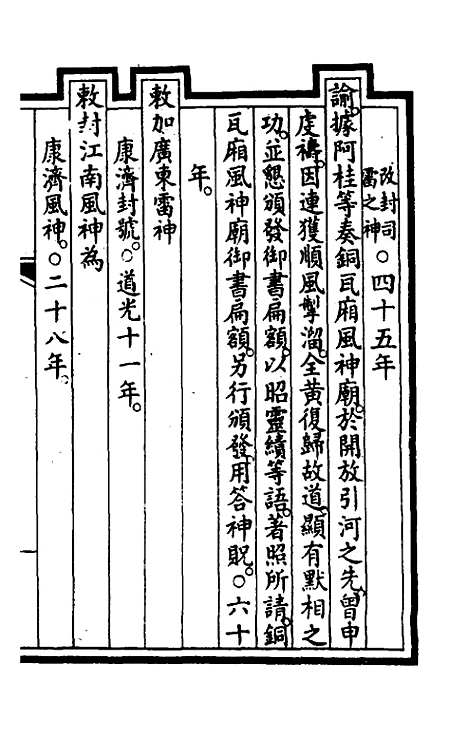 改封司
雷之神○四十五年
諭據阿桂等奏銅瓦廂風神廟於開放引河之先曾申
虔禱因連獲順風掣溜全黃復歸故道顯有默相之
功並懇頒發御書扁額以昭靈績等語著照所請銅
瓦廂風神廟御書扁額另行頒發用答神貺○六十
年
敕加廣東雷神
康濟封號○道光十一年
敕封江南風神為
康濟風神○二十八年